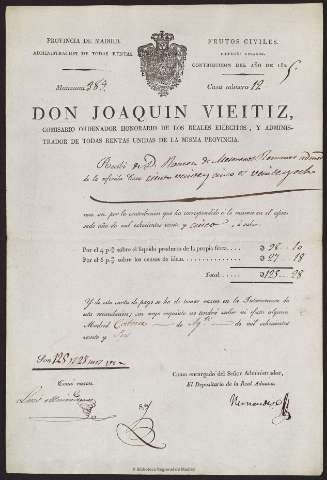 PROVINCIA DE MADRID.
ADMINISTRACION DE TODAS RENTAS.
FRUTOS CIVILES.
CONTRIBUCION DEL AÑO DE 182 5.
Manzana 383.
Casa número 12
DON JOAQUIN VIEITIZ,
COMISARIO ORDENADOR HONORARIO DE LOS REALES EJERCITOS, Y ADMINIS-
TRADOR DE TODAS RENTAS UNIDAS DE LA MISMA PROVINCIA.
Recibí de D. Ramon de Mesonero Romanos
de la referida Casa ciento veinte y cinco rs veinte y ocho
mrs. vn. por la contribucion que ha correspondido á la misma en el espre-
sado año de mil ochocientos veinte y cinco, á saber
Por el 4 p% sobre el líquido producto de la propia finca
Por el 6 p% sobre los censos de idem 27 18
Total 125 28
Y de esta carta de pago se ha de tomar razon en la Intervencion de
esta Administracion, sin cuyo requisito no tendrá valor ni efecto alguno.
Madrid de Ag.to de mil ochocientos
veinte y
Son 125 rs 28 mrs vn
Tomé razon.
Como encargado del Señor Administrador,
El Depositario de la Real Aduana.
Hernandez
© Biblioteca Regional de Madrid